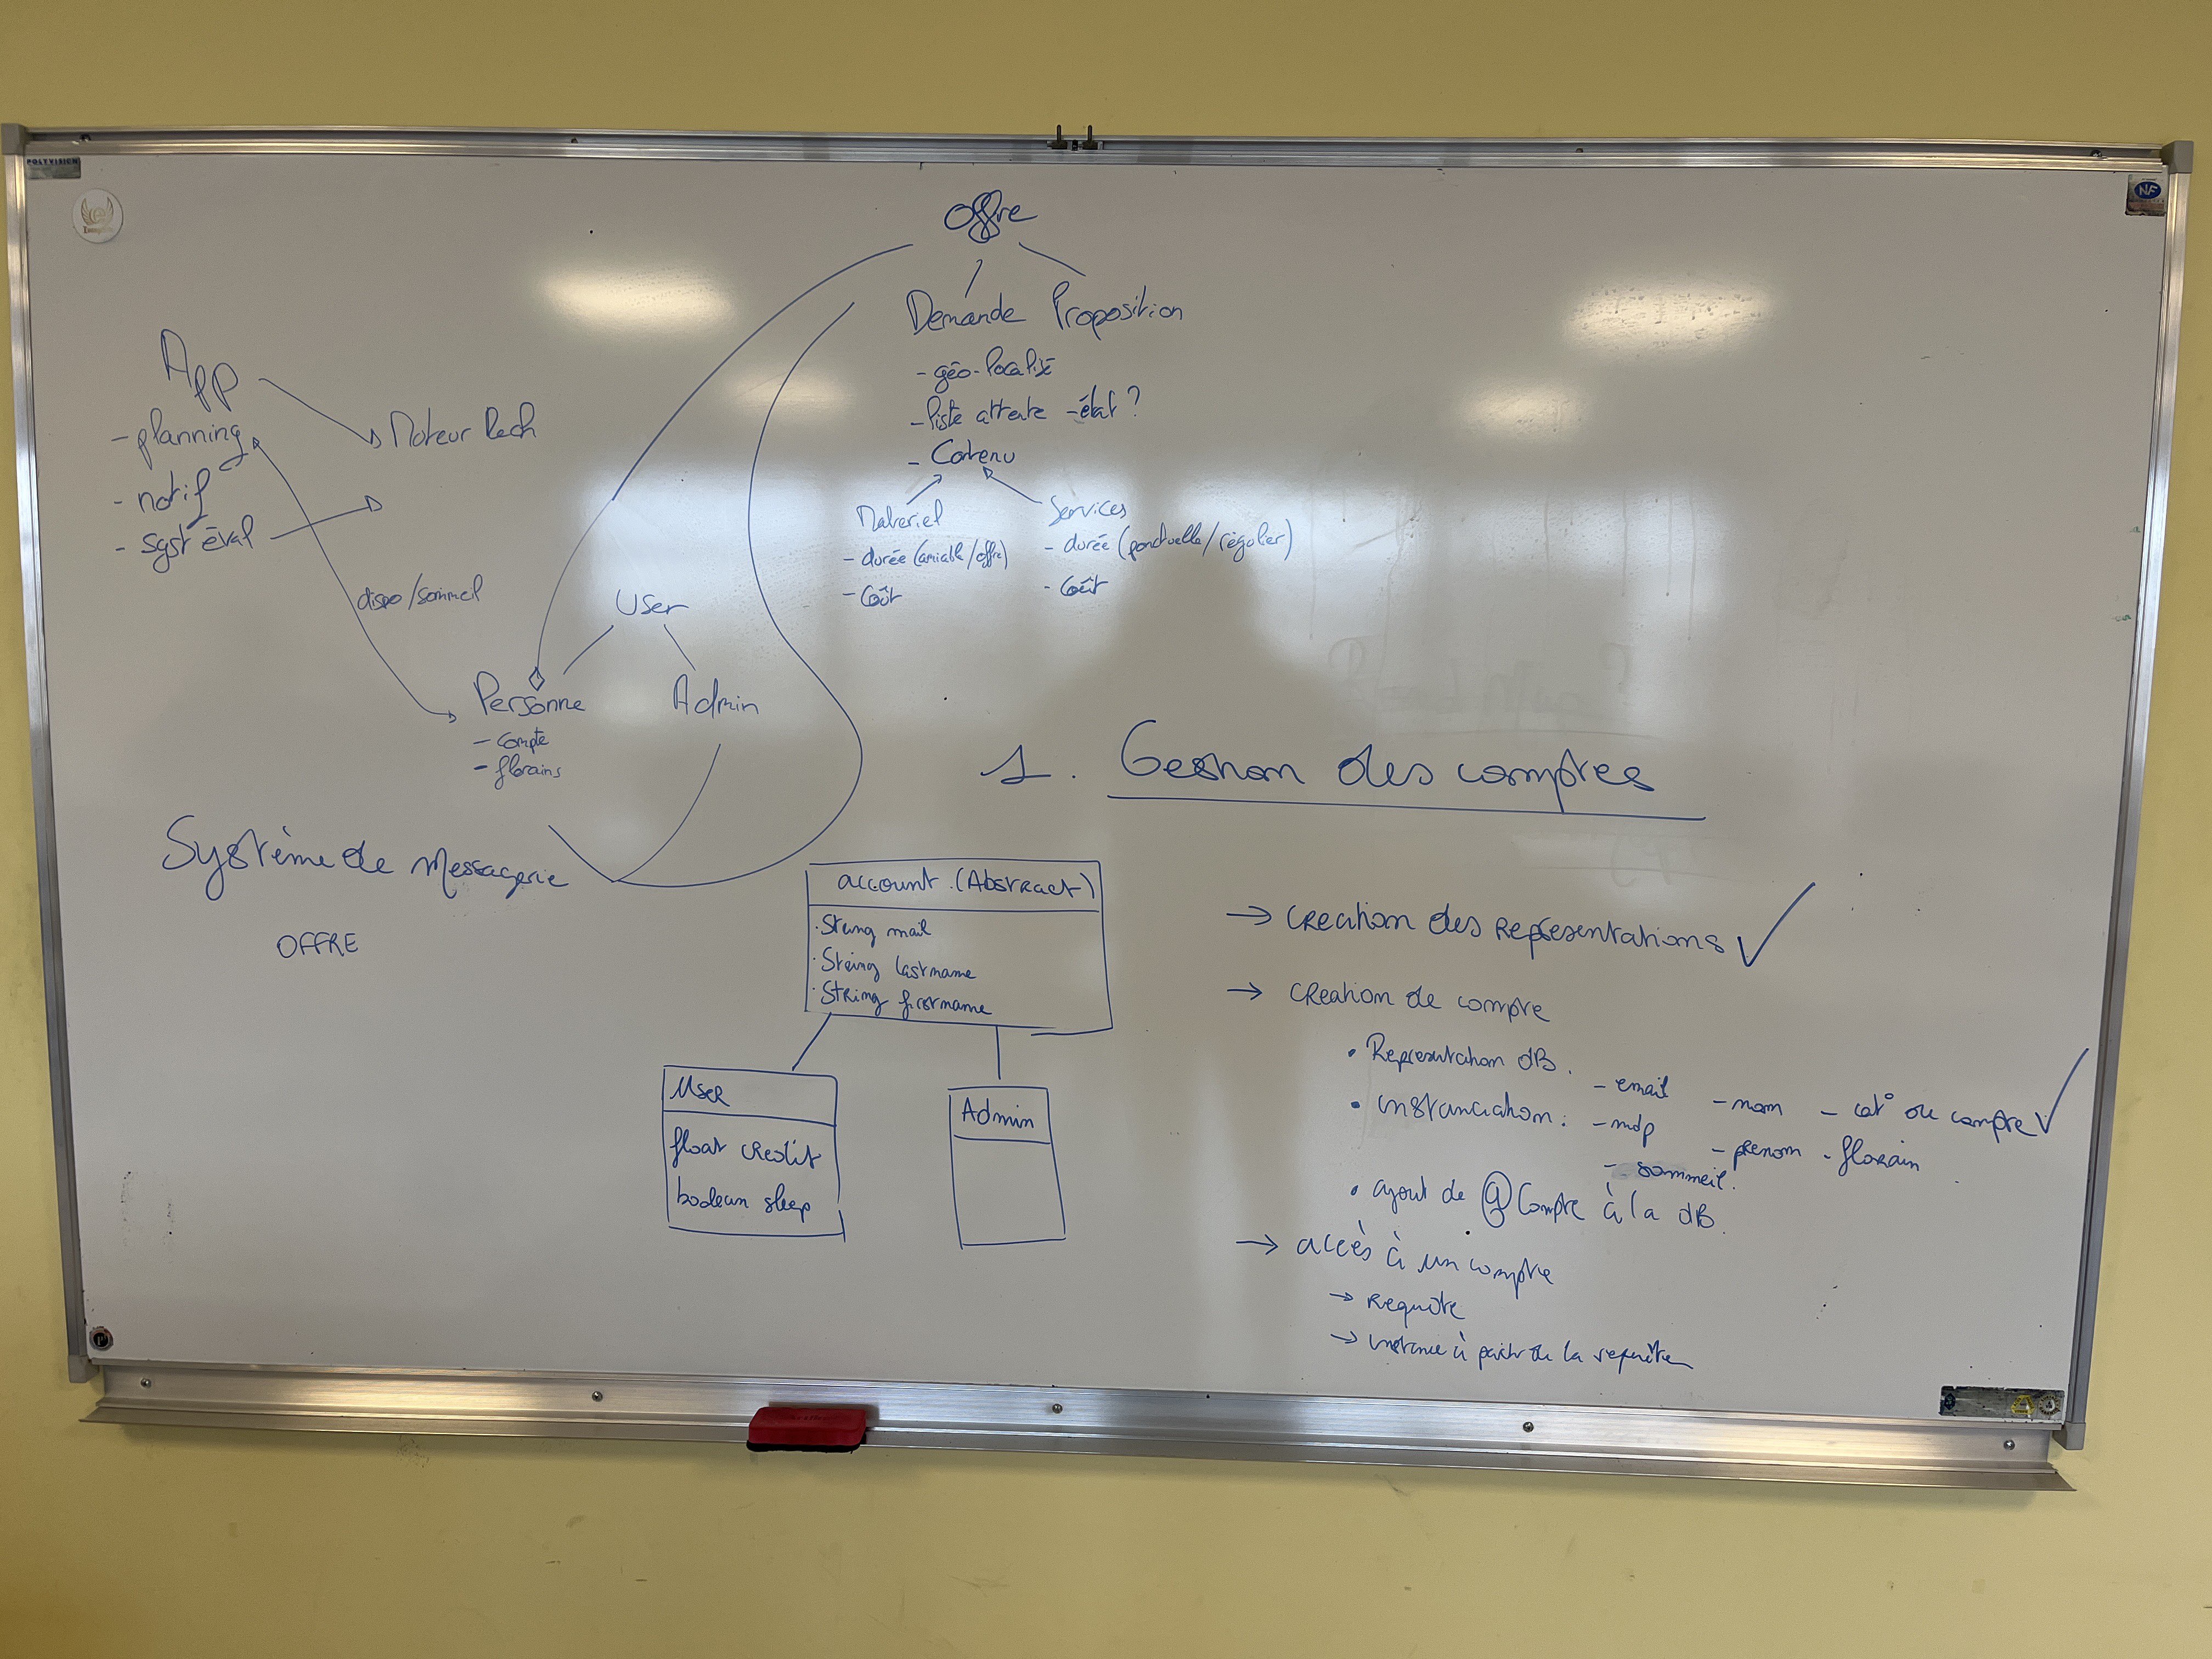 POLYVISION
NF
Offre
Demande Proposition
- géo-localisé
- liste attente - état ?
- Contenu
Materiel
- durée (amiable/offre)
- Coût
Services
- durée (ponctuelle/régulier)
- Coût
App
- planning
- notif
- syst éval
Moteur Rech
dispo/sommeil
User
Personne
- compte
- florains
Admin
Système de Messagerie
OFFRE
account (Abstract)
· String mail
· String lastname
· String firstname
User
float credit
boolean sleep
Admin
1. Gestion des comptes
→ creation des representations ✓
→ creation de compte
• Representation dB.
• instanciation : - email - nom - cat° de compte ✓
- mdp - prenom - florain
- sommeil.
• ajout de @ Compte à la dB.
→ accès à un compte
→ requête
→ instance à partir de la requête